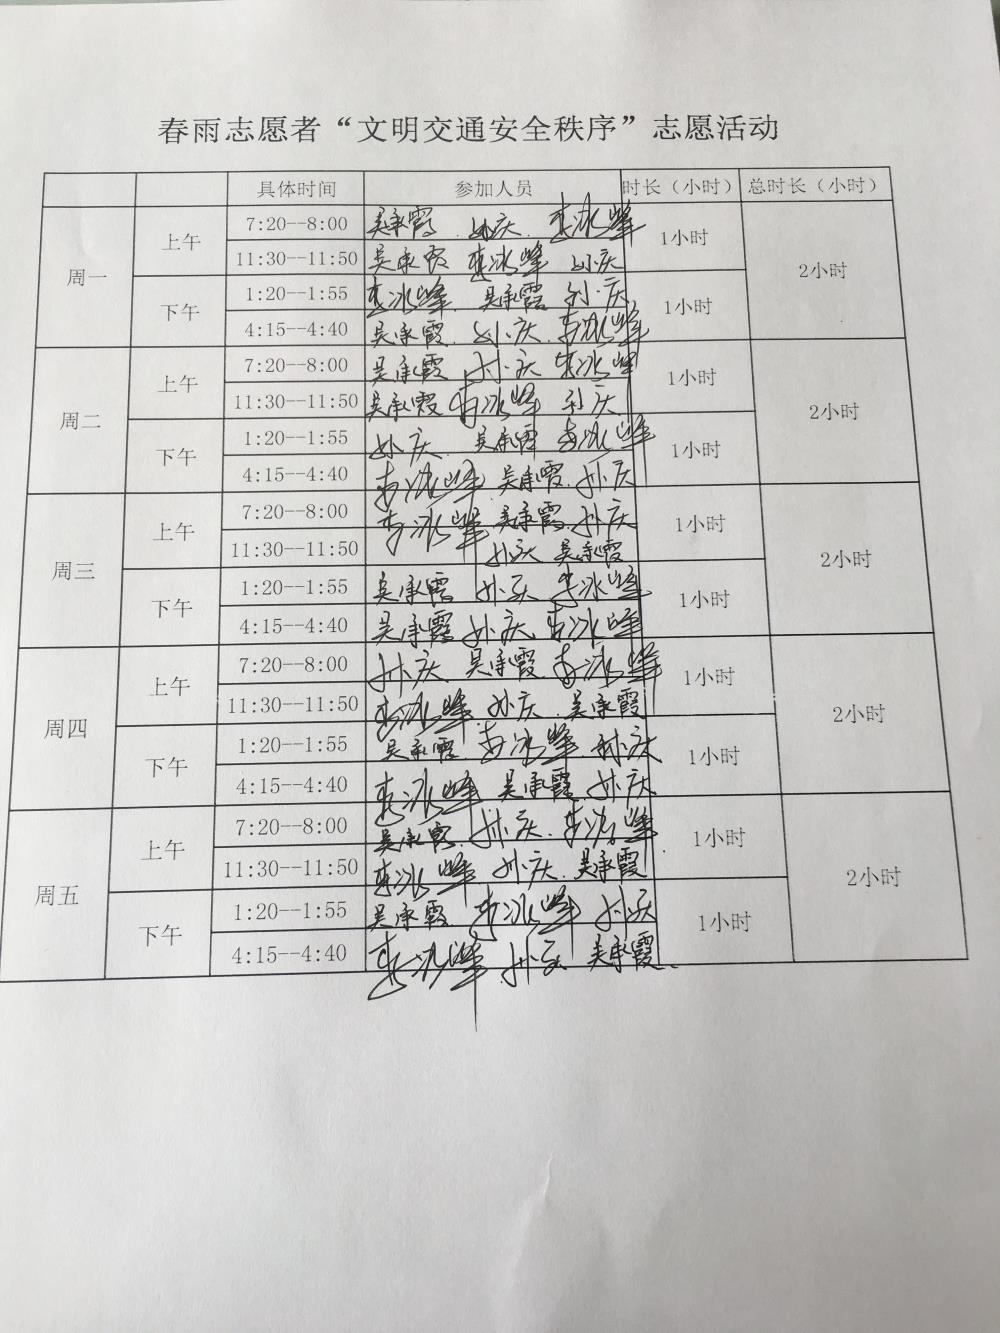 春雨志愿者“文明交通安全秩序”志愿活动
具体时间 参加人员 时长（小时） 总时长（小时）
周一 上午 7:20--8:00 吴承霞 孙庆 李冰峰 1小时 2小时
11:30--11:50 吴承霞 李冰峰 孙庆
下午 1:20--1:55 李冰峰 吴承霞 孙庆 1小时
4:15--4:40 吴承霞 孙庆 李冰峰
周二 上午 7:20--8:00 吴承霞 孙庆 李冰峰 1小时 2小时
11:30--11:50 吴承霞 李冰峰 孙庆
下午 1:20--1:55 孙庆 吴承霞 李冰峰 1小时
4:15--4:40 李冰峰 吴承霞 孙庆
周三 上午 7:20--8:00 李冰峰 吴承霞 孙庆 1小时 2小时
11:30--11:50 孙庆 吴承霞
下午 1:20--1:55 吴承霞 孙庆 李冰峰 1小时
4:15--4:40 吴承霞 孙庆 李冰峰
周四 上午 7:20--8:00 孙庆 吴承霞 李冰峰 1小时 2小时
11:30--11:50 李冰峰 孙庆 吴承霞
下午 1:20--1:55 吴承霞 李冰峰 孙庆 1小时
4:15--4:40 李冰峰 吴承霞 孙庆
周五 上午 7:20--8:00 吴承霞 孙庆 李冰峰 1小时 2小时
11:30--11:50 李冰峰 孙庆 吴承霞
下午 1:20--1:55 吴承霞 李冰峰 孙庆 1小时
4:15--4:40 李冰峰 孙庆 吴承霞